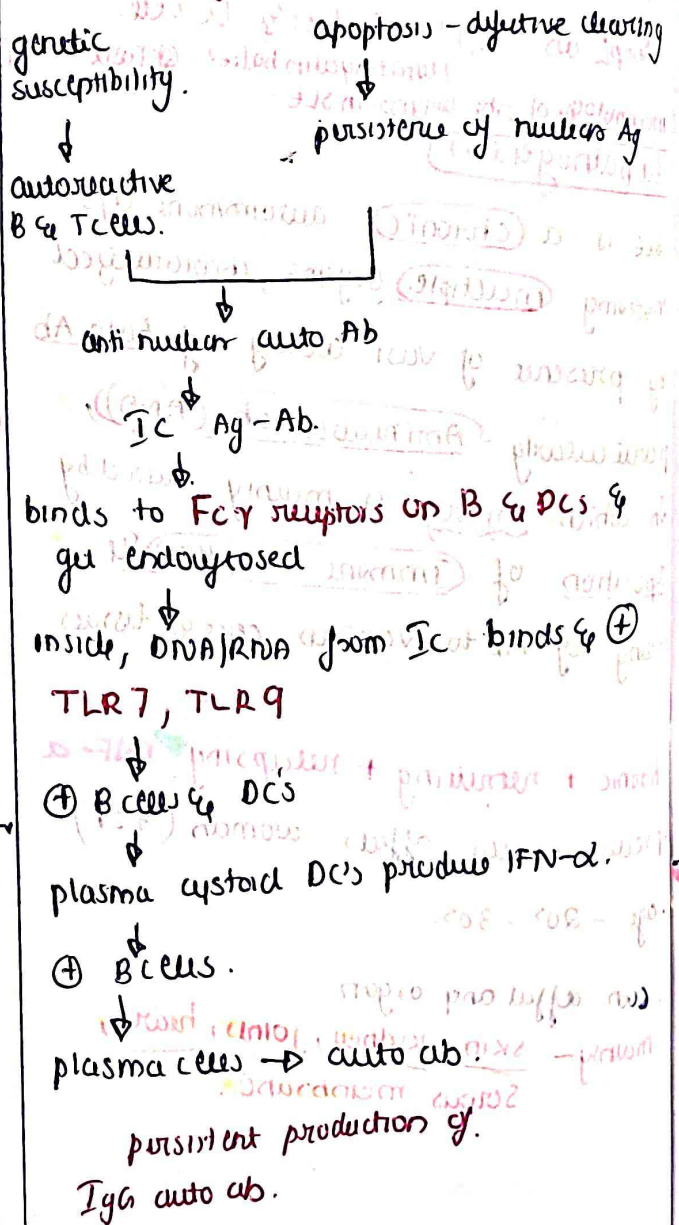 genetic
susceptibility.
apoptosis - defective clearing
persistence of nuclear Ag
autoreactive
B & T cells.
anti nuclear auto Ab
Ic Ag-Ab.
binds to Fcγ receptors on B & DCs &
get endocytosed
inside, DNA/RNA from Ic binds & ⊕
TLR7, TLR9
⊕ B cells & DC's
plasma cystoid DC's produce IFN-α.
⊕ B cells.
plasma cells → auto ab.
persistent production of.
IgG auto ab.